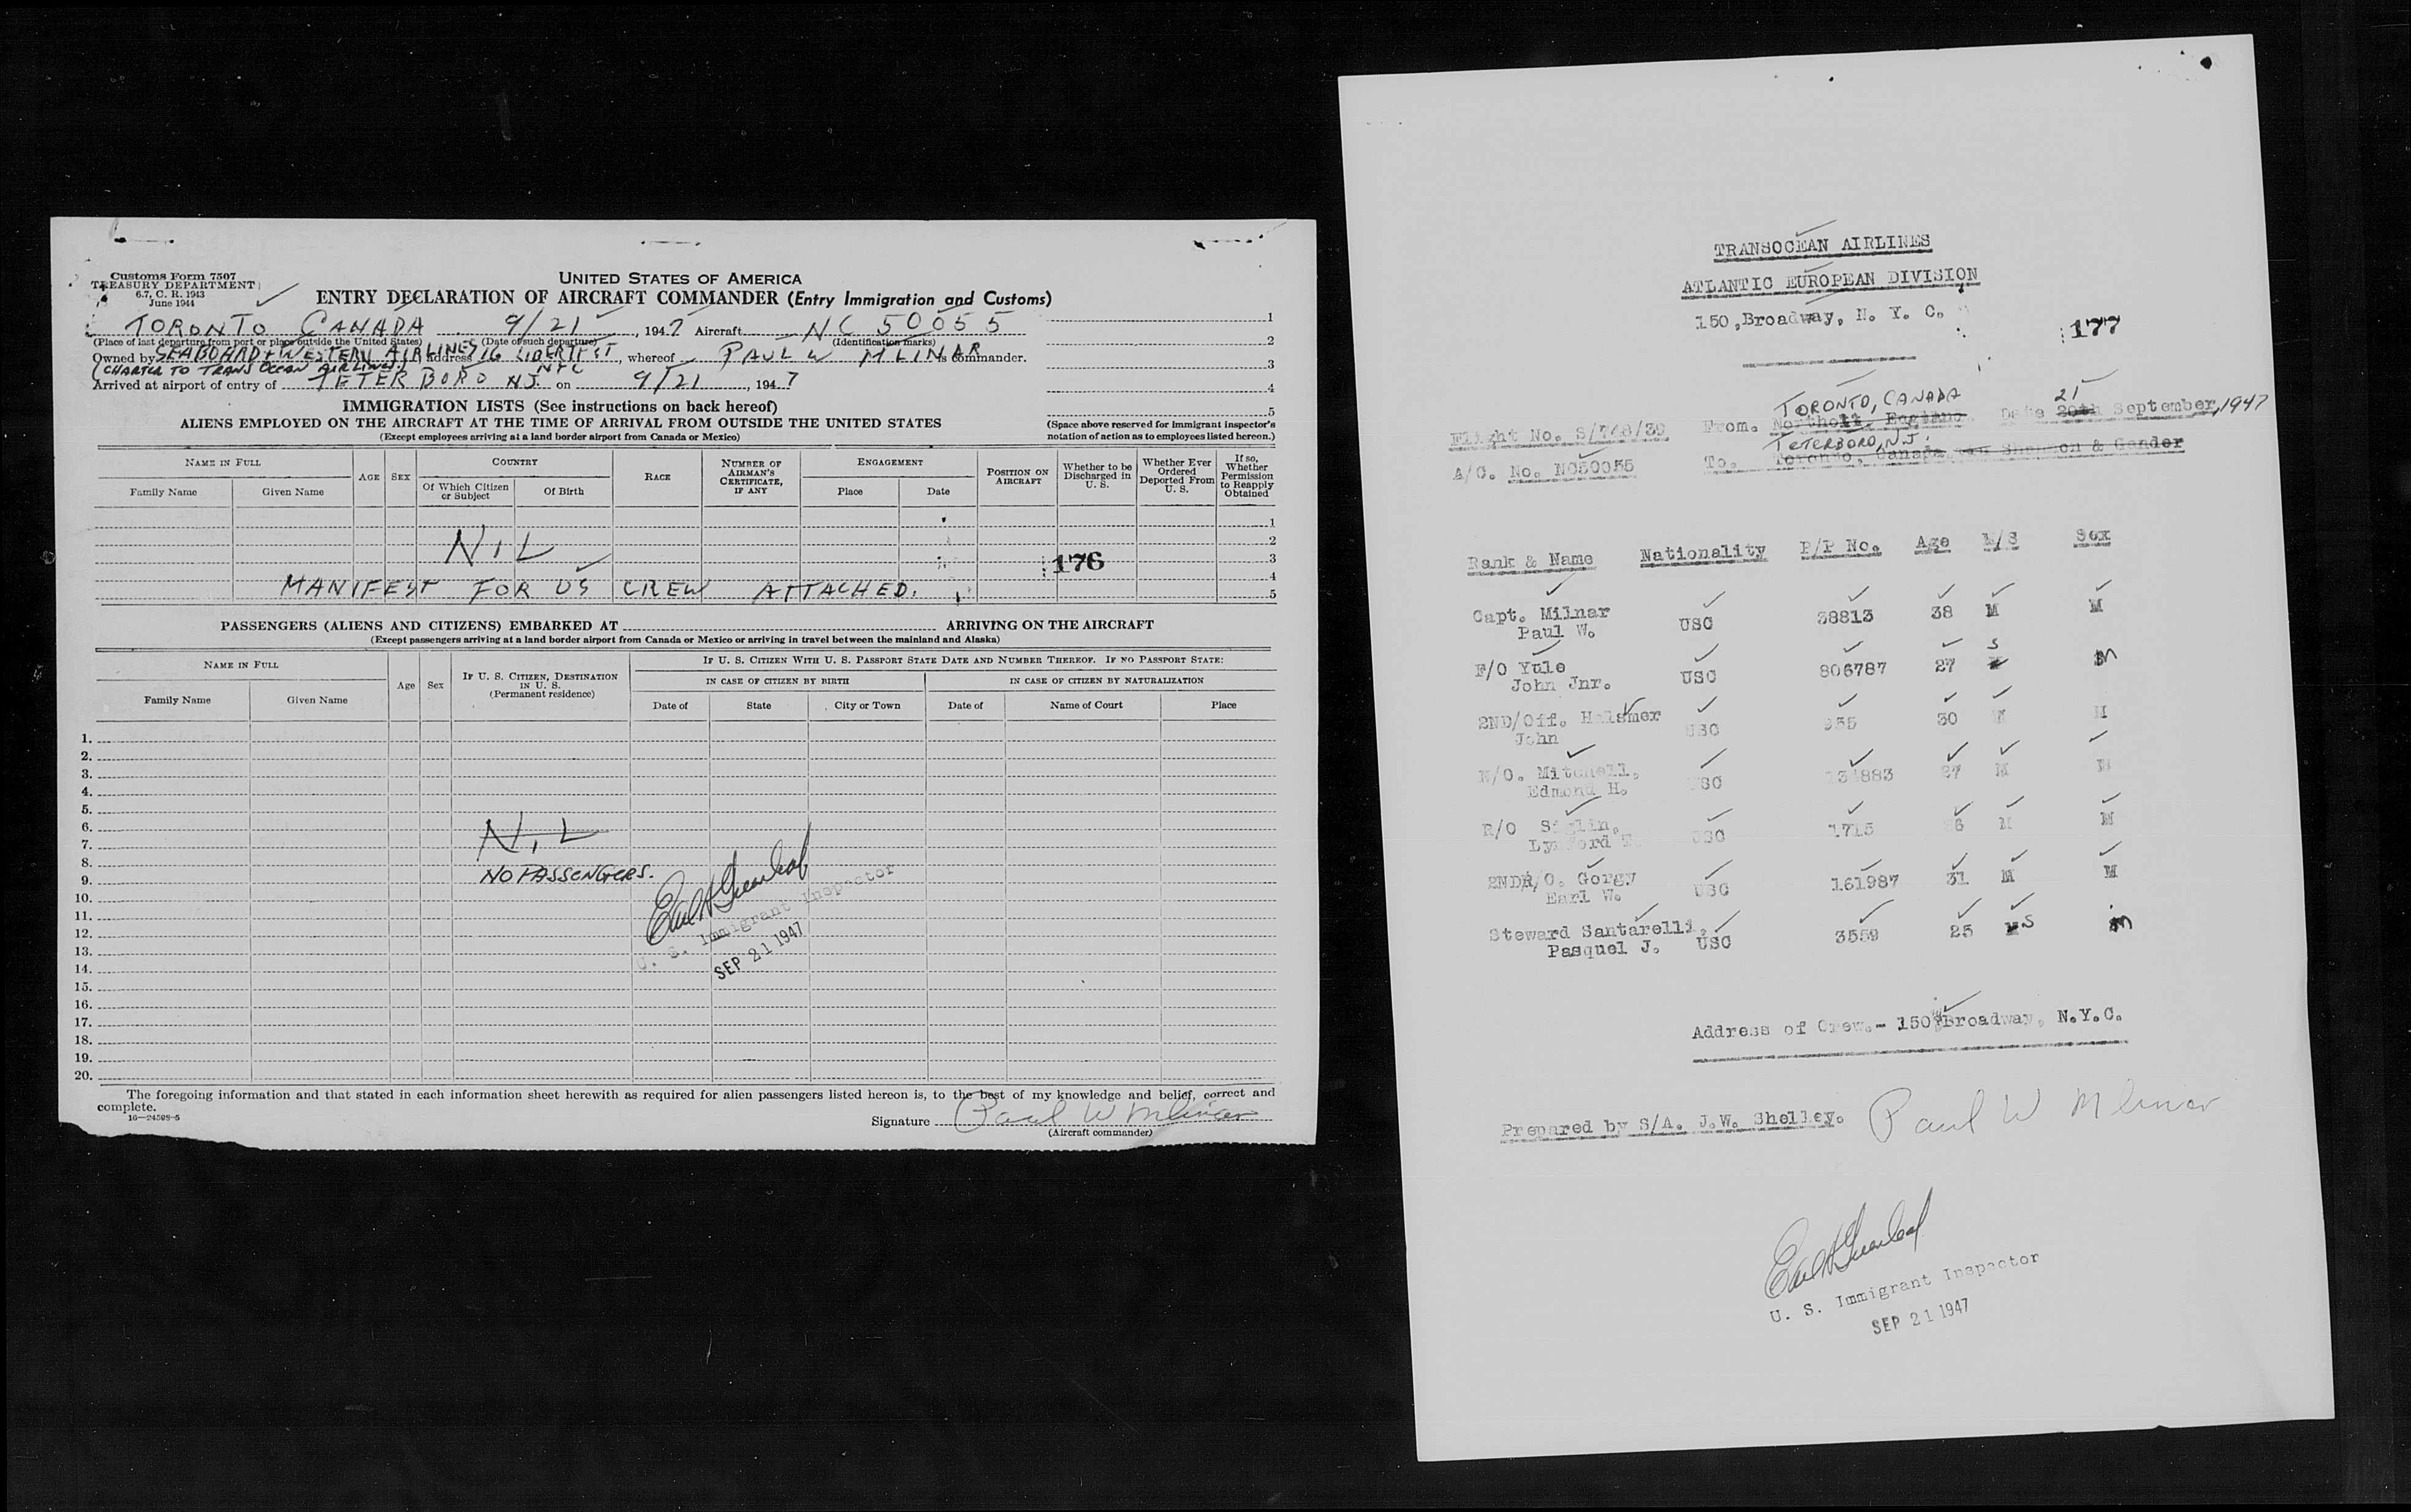 Customs Form 7507
TREASURY DEPARTMENT
6.7, C. R. 1943
June 1944
UNITED STATES OF AMERICA
ENTRY DECLARATION OF AIRCRAFT COMMANDER (Entry Immigration and Customs)
TORONTO CANADA 9/21, 1947 Aircraft NC 50055
(Place of last departure from port or place outside the United States) (Date of such departure) (Identification marks)
Owned by SEABOARD & WESTERN AIRLINES address 16 LIBERTY ST, whereof PAUL W MLINAR is commander.
(CHARTER TO TRANS OCEAN AIRLINES) NYC
Arrived at airport of entry of TETERBORO NJ. on 9/21, 1947
1
2
3
4
5
IMMIGRATION LISTS (See instructions on back hereof)
ALIENS EMPLOYED ON THE AIRCRAFT AT THE TIME OF ARRIVAL FROM OUTSIDE THE UNITED STATES
(Except employees arriving at a land border airport from Canada or Mexico)
(Space above reserved for immigrant inspector's notation of action as to employees listed hereon.)
NAME IN FULL
Family Name Given Name
AGE SEX
COUNTRY
Of Which Citizen or Subject Of Birth
RACE
NUMBER OF AIRMAN'S CERTIFICATE, IF ANY
ENGAGEMENT
Place Date
POSITION ON AIRCRAFT
Whether to be Discharged in U. S.
Whether Ever Ordered Deported From U. S.
If so, Whether Permission to Reapply Obtained
1
2
NIL
3
176
4
MANIFEST FOR US CREW ATTACHED.
5
PASSENGERS (ALIENS AND CITIZENS) EMBARKED AT ARRIVING ON THE AIRCRAFT
(Except passengers arriving at a land border airport from Canada or Mexico or arriving in travel between the mainland and Alaska)
NAME IN FULL
Family Name Given Name
Age Sex
IF U. S. CITIZEN, DESTINATION IN U. S. (Permanent residence)
IF U. S. CITIZEN WITH U. S. PASSPORT STATE DATE AND NUMBER THEREOF. IF NO PASSPORT STATE:
IN CASE OF CITIZEN BY BIRTH IN CASE OF CITIZEN BY NATURALIZATION
Date of State City or Town Date of Name of Court Place
1.
2.
3.
4.
5.
6.
NIL
7.
8.
NO PASSENGERS.
9.
10.
11.
12.
13.
14.
15.
16.
17.
18.
19.
20.
Earl A Greenleaf
U. S. Immigrant Inspector
SEP 21 1947
The foregoing information and that stated in each information sheet herewith as required for alien passengers listed hereon is, to the best of my knowledge and belief, correct and
complete.
16—24598-5
Signature Paul W Mlinar
(Aircraft commander)
TRANSOCEAN AIRLINES
ATLANTIC EUROPEAN DIVISION
150, Broadway, N. Y. C.
177
TORONTO, CANADA 21
Flight No. S/748/30 From. Northolt England Date 20th September, 1947
TETERBORO, N.J.
A/C. No. NC50055 To. Toronto, Canada via Shannon & Gander
Rank & Name Nationality P/P No. Age M/S Sex
Capt. Milnar USC 38813 38 M M
Paul W.
F/O Yule USC 806787 27 S M
John Jnr.
2ND/Off. Halsmer USC 955 30 M M
John
N/O. Mitchell, USC 134883 27 M M
Edmond H.
R/O USC 1715 M M
2NDR/O. Gorgy USC 161987 31 M M
Earl W.
Steward Santarelli, USC 3559 25 S M
Pasquel J.
Address of Crew.- 150 Broadway, N.Y.C.
Prepared by S/A. J.W. Shelley. Paul W Mlinar
Earl A Greenleaf
U. S. Immigrant Inspector
SEP 21 1947